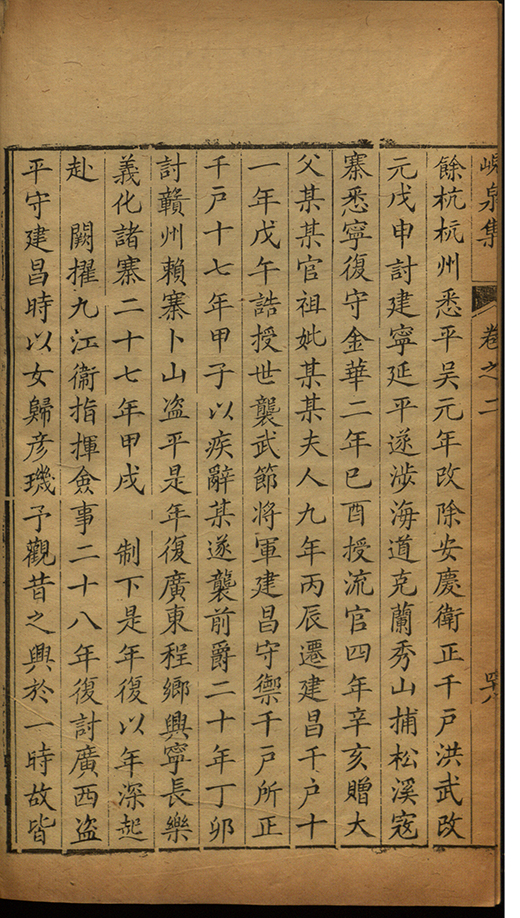 峴泉集 卷之二 四十八
餘杭杭州悉平吳元年改除安慶衛正千戶洪武改
元戊申討建寧延平遂涉海道克蘭秀山捕松溪寇
寨悉寧復守金華二年已酉授流官四年辛亥贈大
父某某官祖妣某某夫人九年丙辰遷建昌千戶十
一年戊午誥授世襲武節將軍建昌守禦千戶所正
千戶十七年甲子以疾辭某遂襲前爵二十年丁卯
討贛州賴寨卜山盗平是年復廣東程鄉興寧長樂
義化諸寨二十七年甲戌 制下是年復以年深起
赴 闕擢九江衛指揮僉事二十八年復討廣西盗
平守建昌時以女歸彥璣予觀昔之興於一時故皆